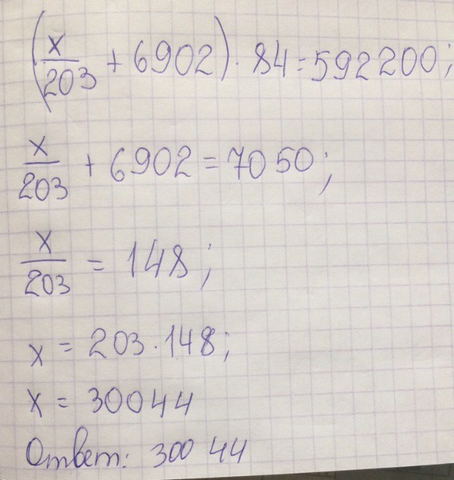 (x/203 + 6902) · 84 = 592200;
x/203 + 6902 = 7050;
x/203 = 148;
x = 203 · 148;
x = 30044
Ответ: 30044